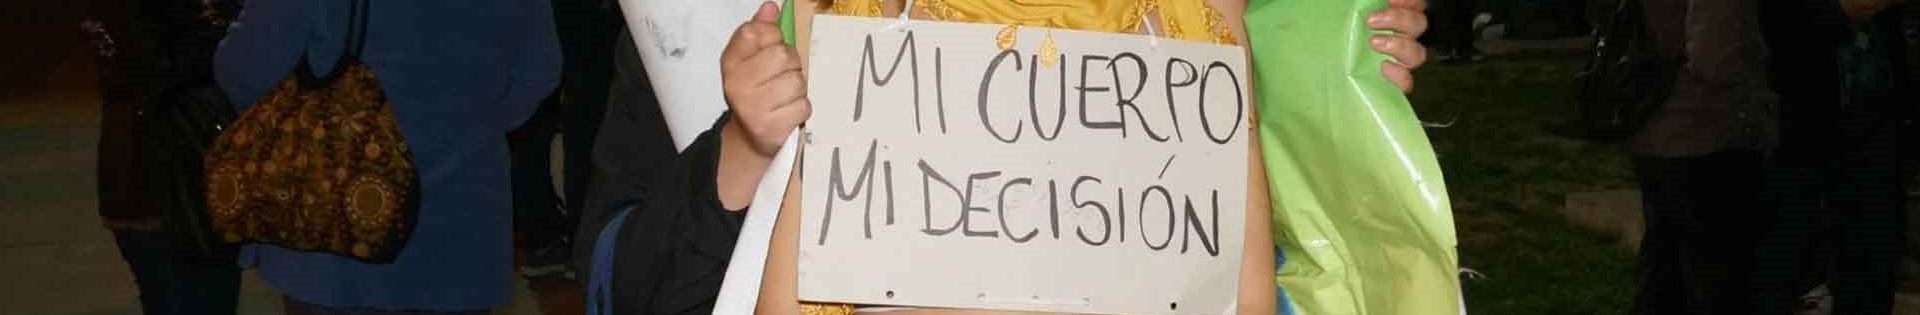 MI CUERPO
MI DECISIÓN